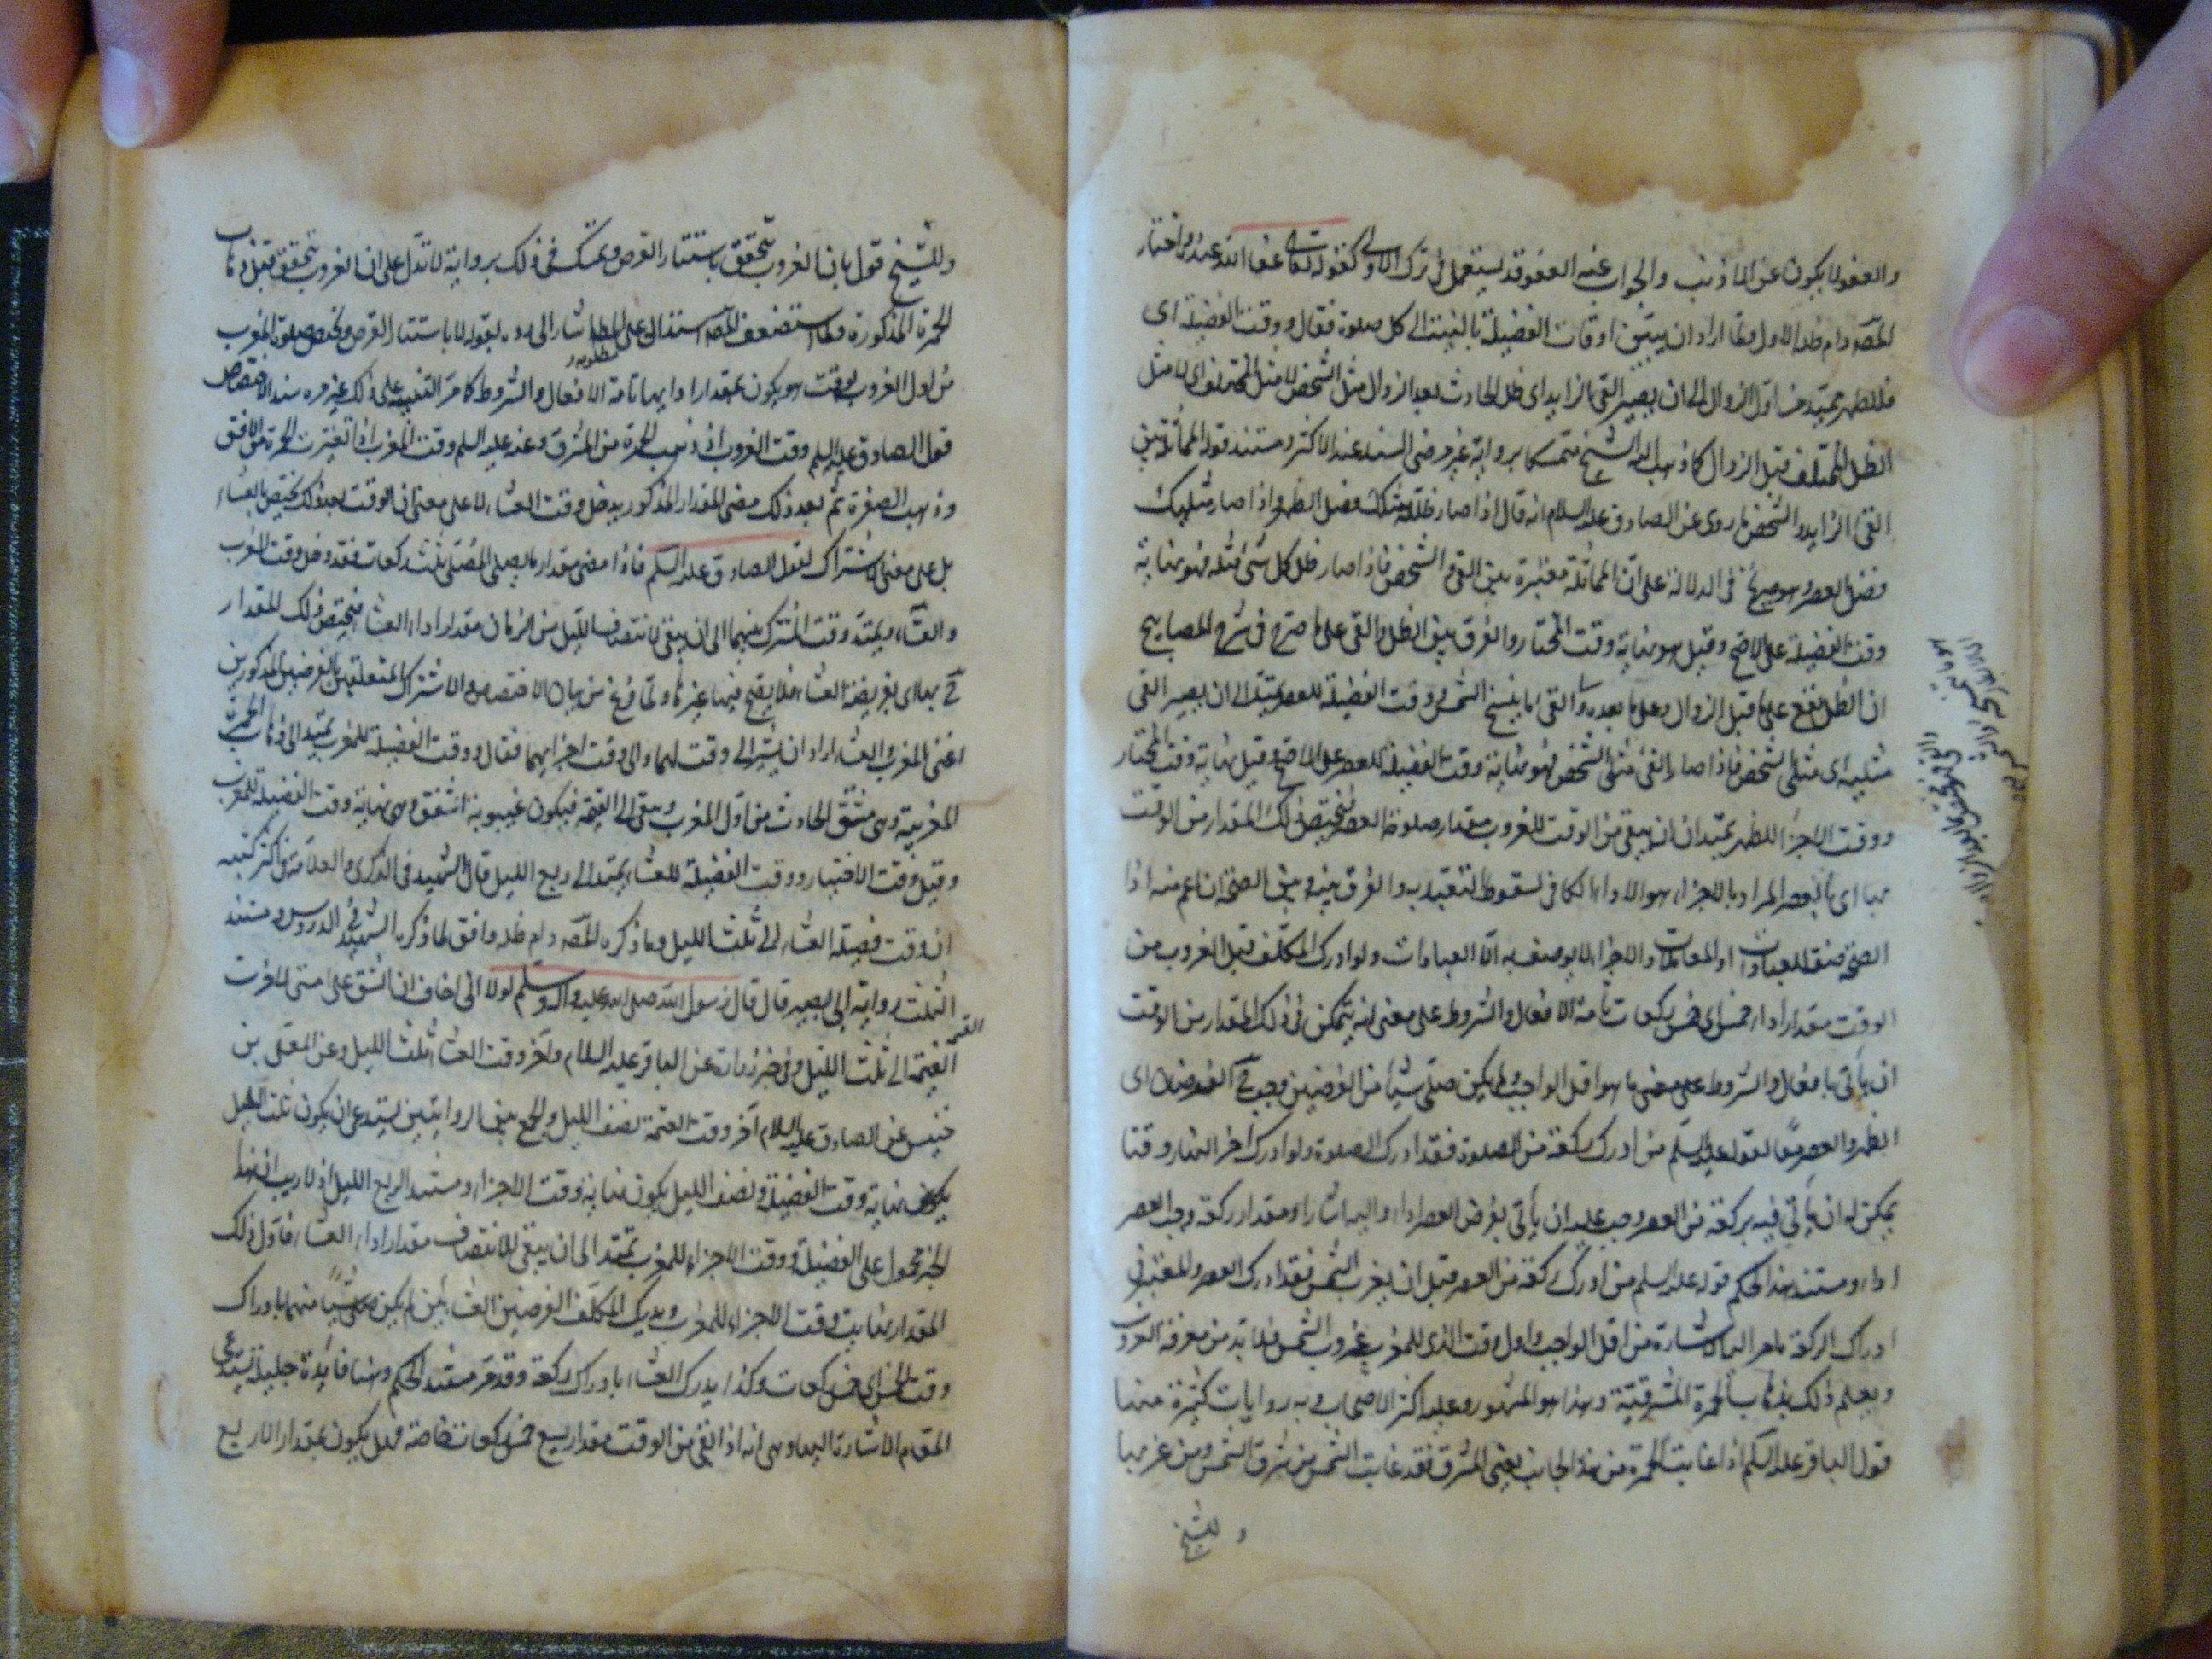 والعفو لا يكون عن الا ذنب والجواب عنه العفو قد يستعمل فى ترك الاولى كقوله تعالى عفا الله عنك واختار
المصه دام ظله الاول ولما اراد ان يبيّن اوقات الفضيلة بالنسبة الى كل صلوة فقال ووقت الفضيلة اى
فللظهر يمتد من اول الزوال الى ان يصير الفئ الزايد اى ظل الحادث بعد الزوال مثل الشخص لا مثل المتخلف اى لا مثل
الظل المتخلف قبل الزوال كما ذهب اليه الشيخ متمسكا برواية غير مرضى السند عند الاكثر ومستند قوله المماثلة بين
الفئ الزايد والشخص ما روى عن الصادق عليه السلام انه قال اذا صار ظلك مثلك فصل الظهر واذا صار مثليك
فصل العصر وهو صريح فى الدلالة على ان المماثلة معتبرة بين الفئ والشخص فاذا صار ظل كل شئ مثله فهو نهاية
وقت الفضيلة على الاصح وقيل هو نهاية وقت المختار والفرق بين الظل والفئ على ما صرح فى شرح المصابيح
ان الظل يقع على ما قبل الزوال وعلى ما بعده والفئ ما ينسخ الشمس ووقت الفضيلة للعصر يمتد الى ان يصير الفئ
مثليه اى مثلى الشخص فاذا صار الفئ مثلى الشخص فهو نهاية وقت الفضيلة للعصر على الاصح وقيل نهاية وقت المختار
ووقت الاجزاء للظهر يمتد ان ان يبقى من الوقت للغروب مقدار صلوة العصر فيختص ذلك المقدار من الوقت
بها اى بالعصر المراد بالاجزاء هو الاداء الكافى لسقوط التعبد به والفرق بينه وبين الصحة انا عم منه اذا
الصحة صفة للعبادات او المعاملات والاجزاء لا يوصف به الا العبادات ولو ادرك المكلف قبل الغروب من
الوقت مقدار اداء خمس اى خمس ركعات تامة الافعال والشروط على معنى انه يتمكن فى ذلك المقدار من الوقت
ان يأتى بافعال والشروط على معنى ما هو اقل الواجب ولم يكن صلى شيئا من الفرضين وجب ح الفرضان اى
الظهر والعصر معا لقوله عليه السلم من ادرك ركعة من الصلوة فقد ادرك الصلوة ولو ادرك آخر النهار وقتا
يمكن له ان يأتى فيه بركعة من العصر وجب عليه ان يأتى بفرض العصر اداء واليه اشار او مقدار ركعة وجب العصر
اداء ومستند هذا الحكم قوله عليه السلم من ادرك ركعة من العصر قبل ان يغرب الشمس فقد ادرك العصر والمعتبر فى
ادراك الركعة ما مر اليه الاشارة من اقل الواجب واول وقت الذى للمغرب غروب الشمس فلا بد من معرفة الغروب
ويعلم ذلك بذهاب الحمرة المشرقية وهذا هو المشهور وعليه اكثر الاصحاب وبه روايات كثيرة منها
قول الباقر عليه السلم اذا غابت الحمرة من هذا الجانب يعنى المشرق فقد غابت الشمس من شرق الشمس ومن غربها
وللشيخ
وللشيخ قول بان الغروب يتحقق باستتار القرص ويتمسك فى ذلك برواية لا تدل على ان الغروب يتحقق قبل ذهاب
الحمرة المذكورة ولما استضعف المصه استدلاله على المط اشار الى رده بقوله لا باستتار القرص ويختص صلوة المغرب
من اول الغروب بوقت هو يكون بمقدار ادايها تامة الافعال والشروط كما مر التنبيه على ذلك غير مرة سند الاختصاص
قول الصادق عليه السلم وقت الغروب اذ ذهب الحمرة من المشرق وعنه عليه السلم وقت المغرب اذا تغيرت الحمرة من الافق
وذهب الصفرة ثم بعد ذلك مضى المقدار المذكور يدخل وقت العشاء لا على معنى ان الوقت بعد ذلك يختص بالعشاء
بل على معنى الاشتراك لقول الصادق عليه السلم فاذا مضى مقدار ما يصلى المصلى ثلث ركعات فقد دخل وقت المغرب
والعشاء ويمتد وقت المشترك بينهما الى ان يبقى لانتصاف الليل من الزمان مقدار اداء العشاء فيختص ذلك المقدار
ح بها اى بفريضة العشاء فلا يصح فيها غيرها ولما فرغ من بيان الاختصاص والاشتراك المتعلقين بالفرضين المذكورين
اعنى المغرب والعشاء اراد ان يشير الى وقت لهما والى وقت اجزايهما فقال ووقت الفضيلة للمغرب يمتد الى ذهاب الحمرة
المغربية وهى مشتق الحادث من اول المغرب ويبقى الى العتمة فيكون غيبوبة الشفق وهى نهاية وقت الفضيلة للمغرب
وقيل وقت الاختيار ووقت الفضيلة للعشاء يمتد الى ربع الليل قال الشهيد فى الذكرى والعلامة فى اكثر كتبه
ان وقت فضيلة العشاء الى ثلث الليل وما ذكره المصه دام ظله وافق لما ذكره الشهيد فى الدروس ومستند
الثلث رواية ابى بصير قال قال رسول الله صلى الله عليه وآله وسلم لولا انى اخاف ان اشق على امتى لاخرت
العتمة الى ثلث الليل وفى خبر زرارة عن الباقر عليه السلام وآخر وقت العشاء ثلث الليل وعن المعلى بن
خنيس عن الصادق عليه السلام آخر وقت العتمة نصف الليل والجمع بين الروايتين يستدعى ان يكون ثلث الليل
يكون نهاية وقت الفضيلة ونصف الليل يكون نهاية وقت الاجزاء ومستند الربع الليل اذ لا ريب ان هذا
الخبر محمول على الفضيلة ووقت الاجزاء للمغرب يمتد الى ان يبقى للانتصاف مقدار اداء العشاء فاول ذلك
المقدار نهاية وقت الاجزاء للمغرب ويدرك المكلف الفرضين العشاءين لم يكن صلى شيئا منهما بادراك
وقت الخمس اى خمس ركعات وكذا يدرك العشاء بادراك ركعة وقد مر مستند الحكم وهنا فايدة جليلة يستدعى
المقام الاشارة اليها وهى انه اذا بقى من الوقت مقدار يسع خمس ركعات خاصة فهل يكون بمقدار الاربع